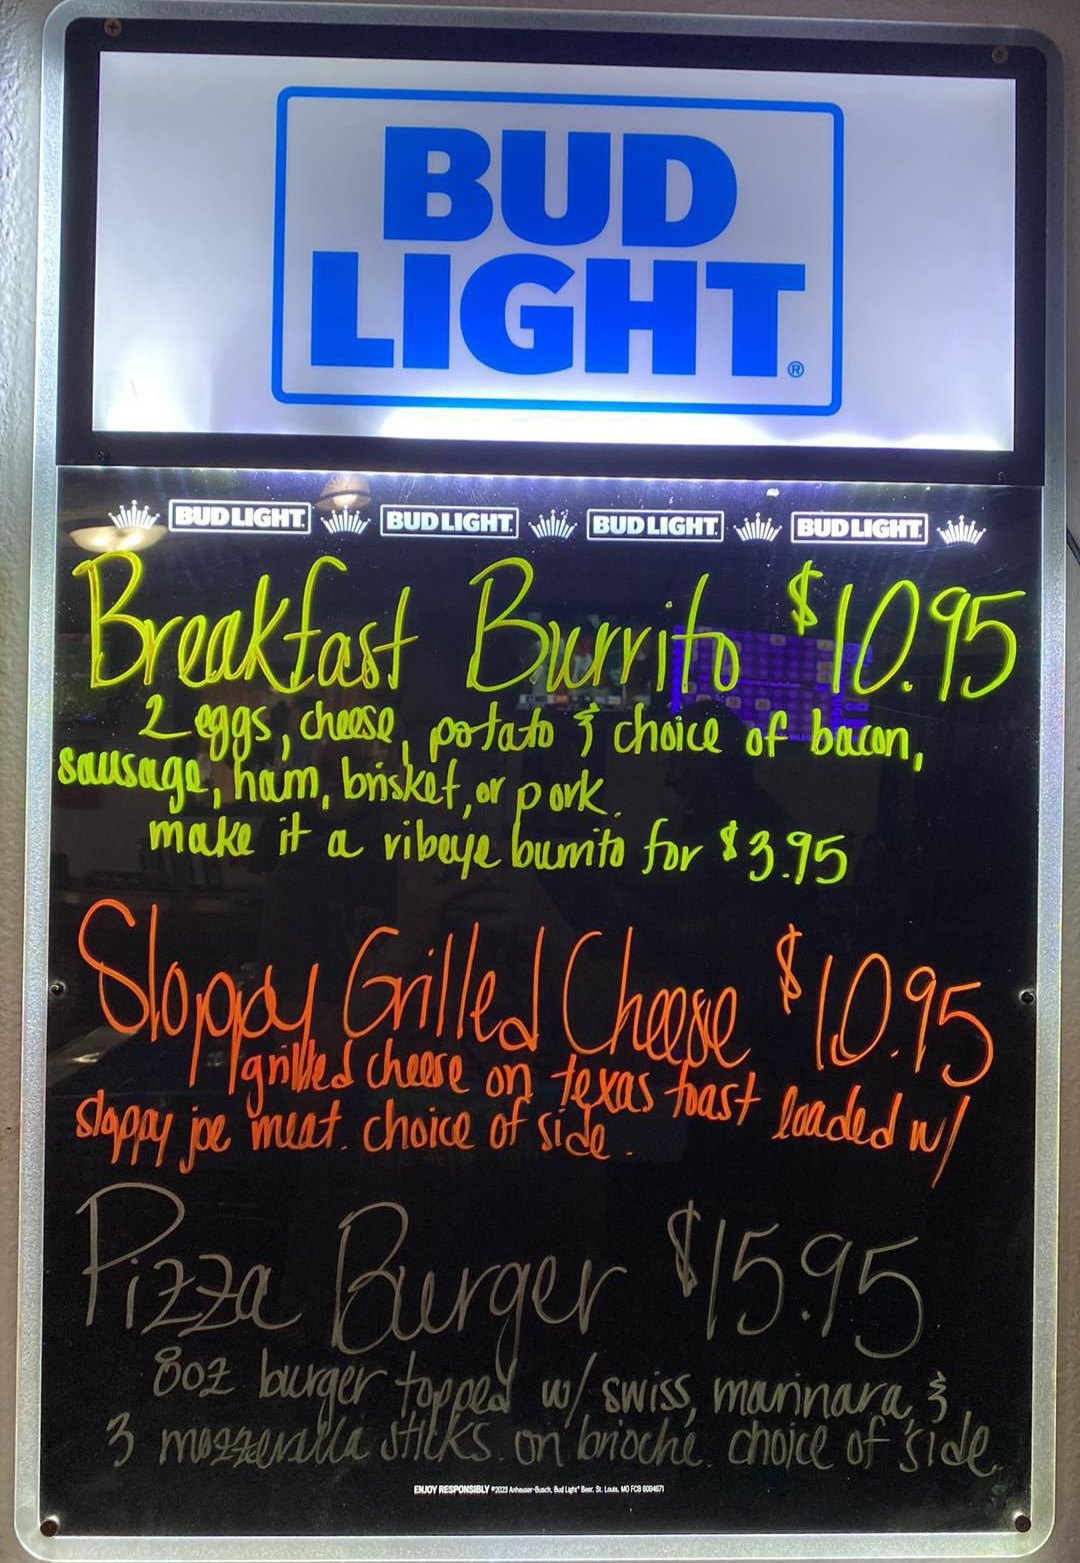 BUD
LIGHT®
BUD LIGHT. BUD LIGHT. BUD LIGHT. BUD LIGHT.
Breakfast Burrito $10.95
2 eggs, cheese, potato & choice of bacon,
sausage, ham, brisket, or pork.
make it a ribeye burrito for $3.95
Sloppy Grilled Cheese $10.95
grilled cheese on texas toast loaded w/
sloppy joe meat. choice of side.
Pizza Burger $15.95
8oz burger topped w/ swiss, marinara, &
3 mozzerella sticks. on brioche. choice of side.
ENJOY RESPONSIBLY ©2023 Anheuser-Busch, Bud Light® Beer, St. Louis, MO FCB 6064671